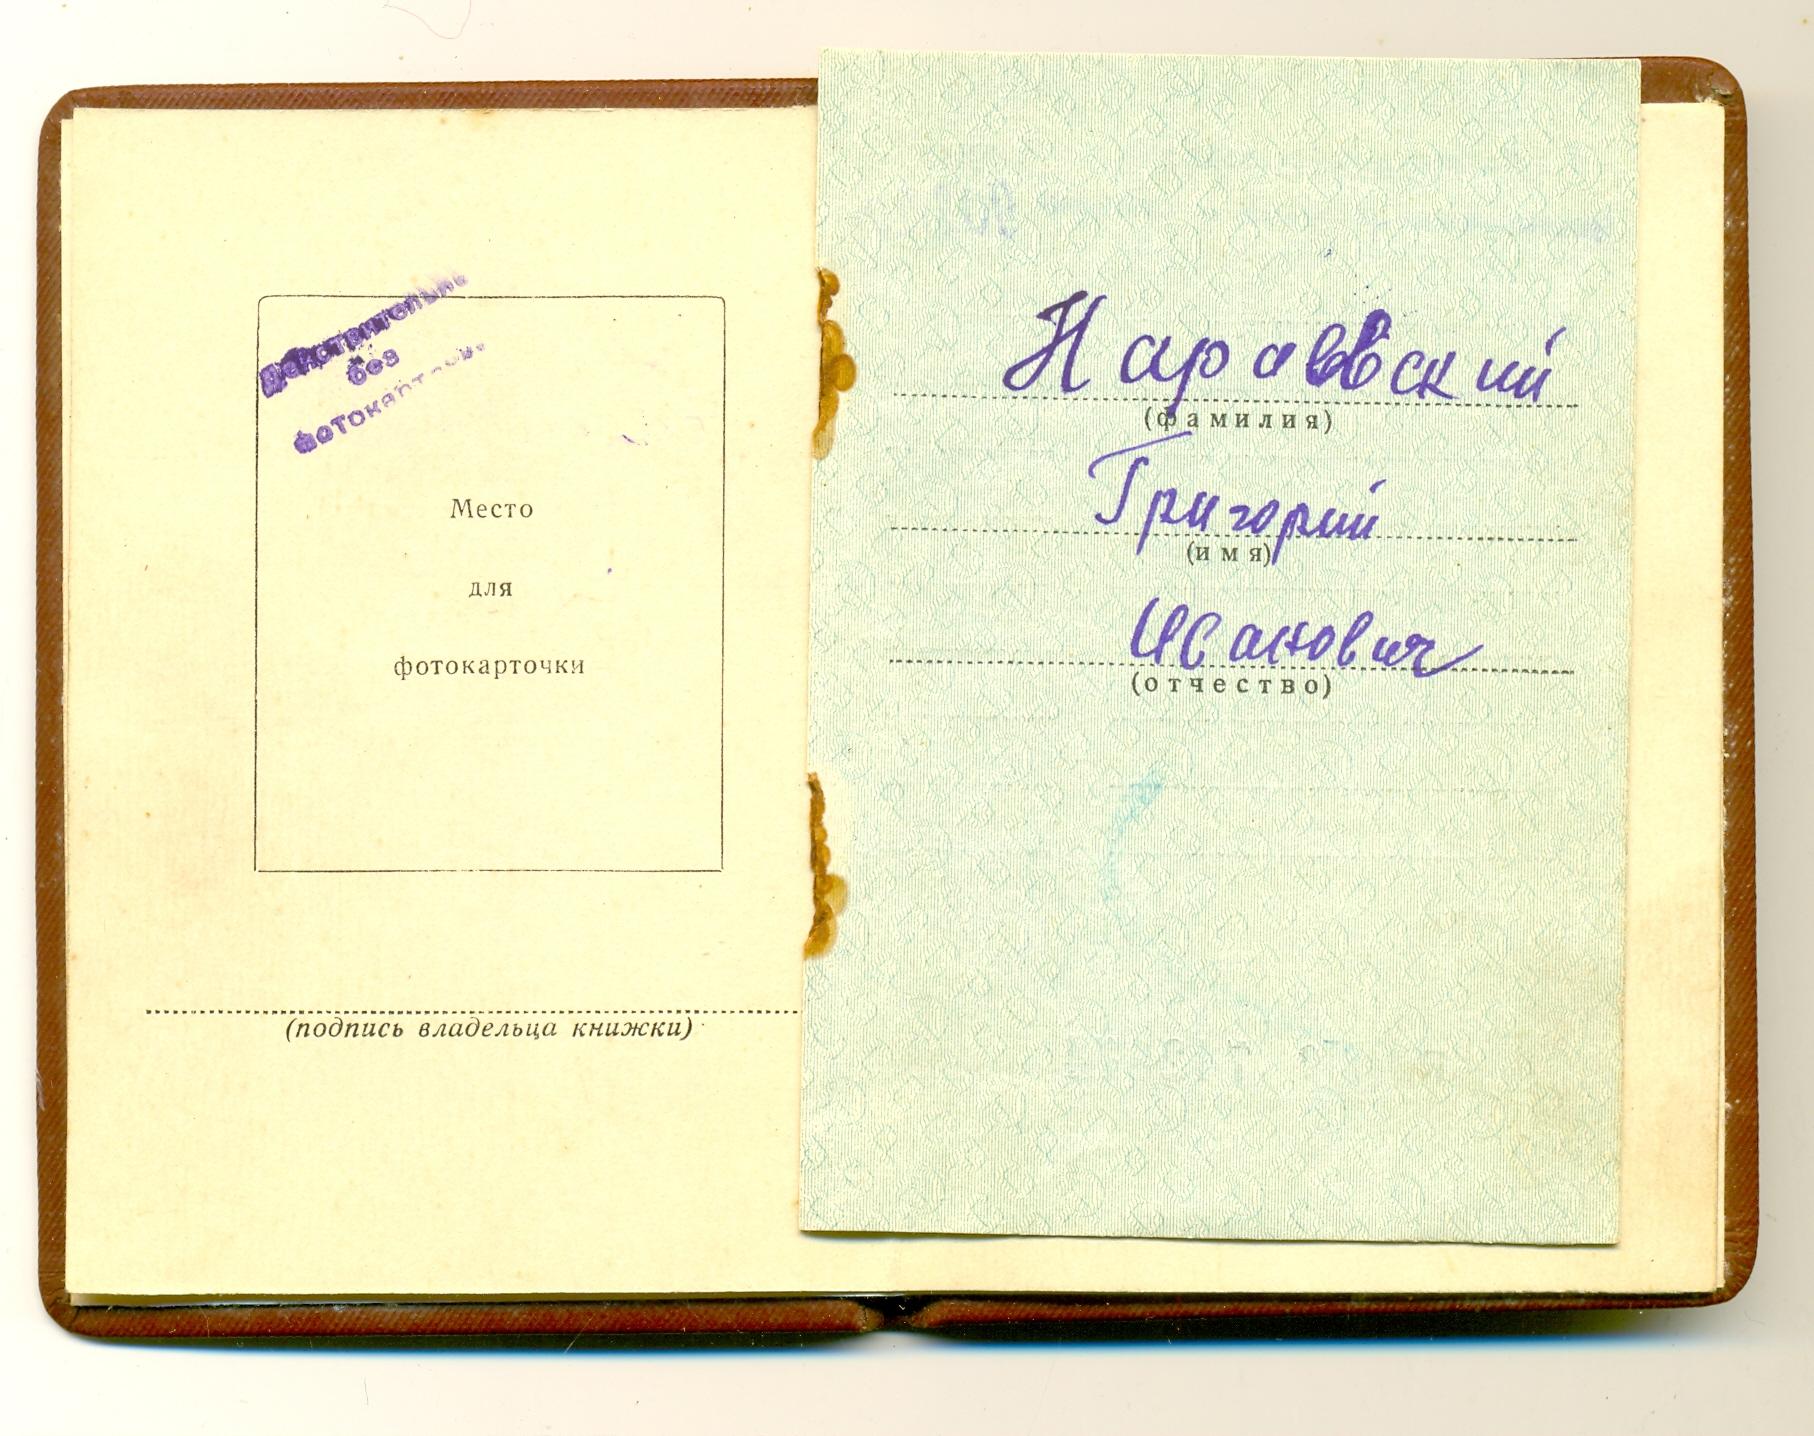 Действительно
без
фотокарточки
Место
для
фотокарточки
(подпись владельца книжки)
(фамилия)
Григорий
(имя)
Исакович
(отчество)